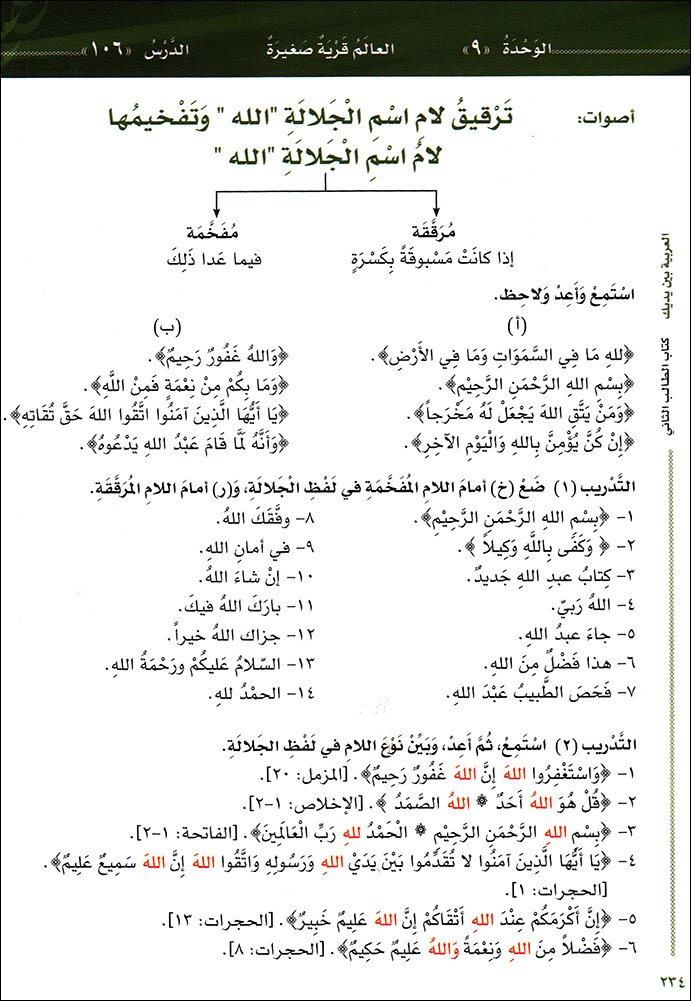 الوَحْدَةُ «٩» العالَمُ قَرْيَةٌ صَغيرَةٌ الدَّرْسُ «١٠٦»
أصوات: تَرْقيقُ لامِ اسْمِ الْجَلالَةِ "الله" وَتَفْخيمُها
لامُ اسْمِ الْجَلالَةِ "الله"
مُرَقَّقَة مُفَخَّمَة
إذا كانَتْ مَسْبوقَةً بِكَسْرَةٍ فيما عَدا ذَلِكَ
العربية بين يديك كتاب الطالب الثاني
اسْتَمِعْ وَأَعِدْ وَلاحِظ.
(أ) (ب)
﴿للهِ مَا فِي السَّمَوَاتِ وَمَا فِي الأَرْضِ﴾. ﴿وَاللهُ غَفُورٌ رَحِيمٌ﴾.
﴿بِسْمِ اللهِ الرَّحْمَنِ الرَّحِيْمِ﴾. ﴿وَمَا بِكُمْ مِنْ نِعْمَةٍ فَمِنْ اللَّهِ﴾.
﴿وَمَنْ يَتَّقِ اللهَ يَجْعَلْ لَهُ مَخْرَجاً﴾. ﴿يَا أَيُّهَا الَّذِينَ آمَنُوا اتَّقُوا اللهَ حَقَّ تُقَاتِهِ﴾.
﴿إِنْ كُنَّ يُؤْمِنَّ بِاللهِ وَالْيَوْمِ الآخِرِ﴾. ﴿وَأَنَّهُ لَمَّا قَامَ عَبْدُ اللهِ يَدْعُوهُ﴾.
التَّدْريب (١) ضَعْ (خ) أمامَ اللامِ المُفَخَّمَةِ في لَفْظِ الجَلالَة، وَ(ر) أمامَ اللامِ المُرَقَّقَةِ.
١- ﴿بِسْمِ اللهِ الرَّحْمَنِ الرَّحِيْمِ﴾. ٨- وفَّقَكَ اللهُ.
٢- ﴿ وَكَفَى بِاللَّهِ وَكِيلاً ﴾. ٩- في أمانِ اللهِ.
٣- كِتابُ عبدِ اللهِ جَديدٌ. ١٠- إنْ شاءَ اللهُ.
٤- اللهُ رَبيّ. ١١- بارَكَ اللهُ فيكَ.
٥- جاءَ عبدُ اللهِ. ١٢- جزاك اللهُ خيراً.
٦- هذا فَضْلٌ مِنَ اللهِ. ١٣- السّلامُ عَليكُمْ ورَحْمَةُ اللهِ.
٧- فَحَصَ الطَّبيبُ عَبْدَ اللهِ. ١٤- الحمْدُ للهِ.
التَّدْريب (٢) اسْتَمِعْ، ثُمَّ أَعِدْ، وَبَيِّنْ نَوْعَ اللامِ في لَفْظِ الجَلالَةِ.
١- ﴿وَاسْتَغْفِرُوا اللهَ إِنَّ اللهَ غَفُورٌ رَحِيمٌ﴾. [المزمل: ٢٠].
٢- ﴿قُلْ هُوَ اللهُ أَحَدٌ * اللهُ الصَّمَدُ ﴾. [الإخلاص: ١-٢].
٣- ﴿بِسْمِ اللهِ الرَّحْمَنِ الرَّحِيْمِ * الْحَمْدُ للهِ رَبِّ الْعَالَمِينَ﴾. [الفاتحة: ١-٢].
٤- ﴿يَا أَيُّهَا الَّذِينَ آمَنُوا لا تُقَدِّمُوا بَيْنَ يَدَيْ اللهِ وَرَسُولِهِ وَاتَّقُوا اللهَ إِنَّ اللهَ سَمِيعٌ عَلِيمٌ﴾.
[الحجرات: ١].
٥- ﴿إِنَّ أَكْرَمَكُمْ عِنْدَ اللهِ أَتْقَاكُمْ إِنَّ اللهَ عَلِيمٌ خَبِيرٌ﴾. [الحجرات: ١٣].
٦- ﴿فَضْلاً مِنَ اللهِ وَنِعْمَةً وَاللهُ عَلِيمٌ حَكِيمٌ﴾. [الحجرات: ٨].
٢٣٤